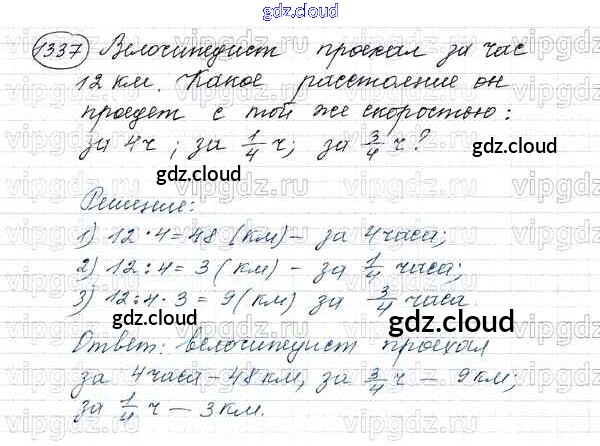 gdz.cloud
1337 Велосипедист проехал за час
12 км. Какое расстояние он
проедет с той же скоростью:
за 4ч; за 1/4 ч; за 3/4 ч?
gdz.cloud
gdz.cloud
Решение:
1) 12·4=48 (км) – за 4 часа;
2) 12:4=3 (км) – за 1/4 часа;
3) 12:4·3=9 (км) за 3/4 часа.
gdz.cloud
gdz.cloud
Ответ: велосипедист проехал
за 4 часа – 48 км, за 3/4 ч – 9 км;
за 1/4 ч – 3 км.
gdz.cloud